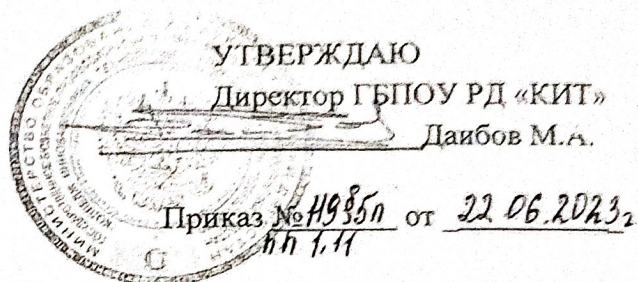 УТВЕРЖДАЮ
Директор ГБПОУ РД «КИТ»
Даибов М.А.
Приказ № от 22.06.2023г
пп 1.11
МИНИСТЕРСТВО ОБРАЗОВА